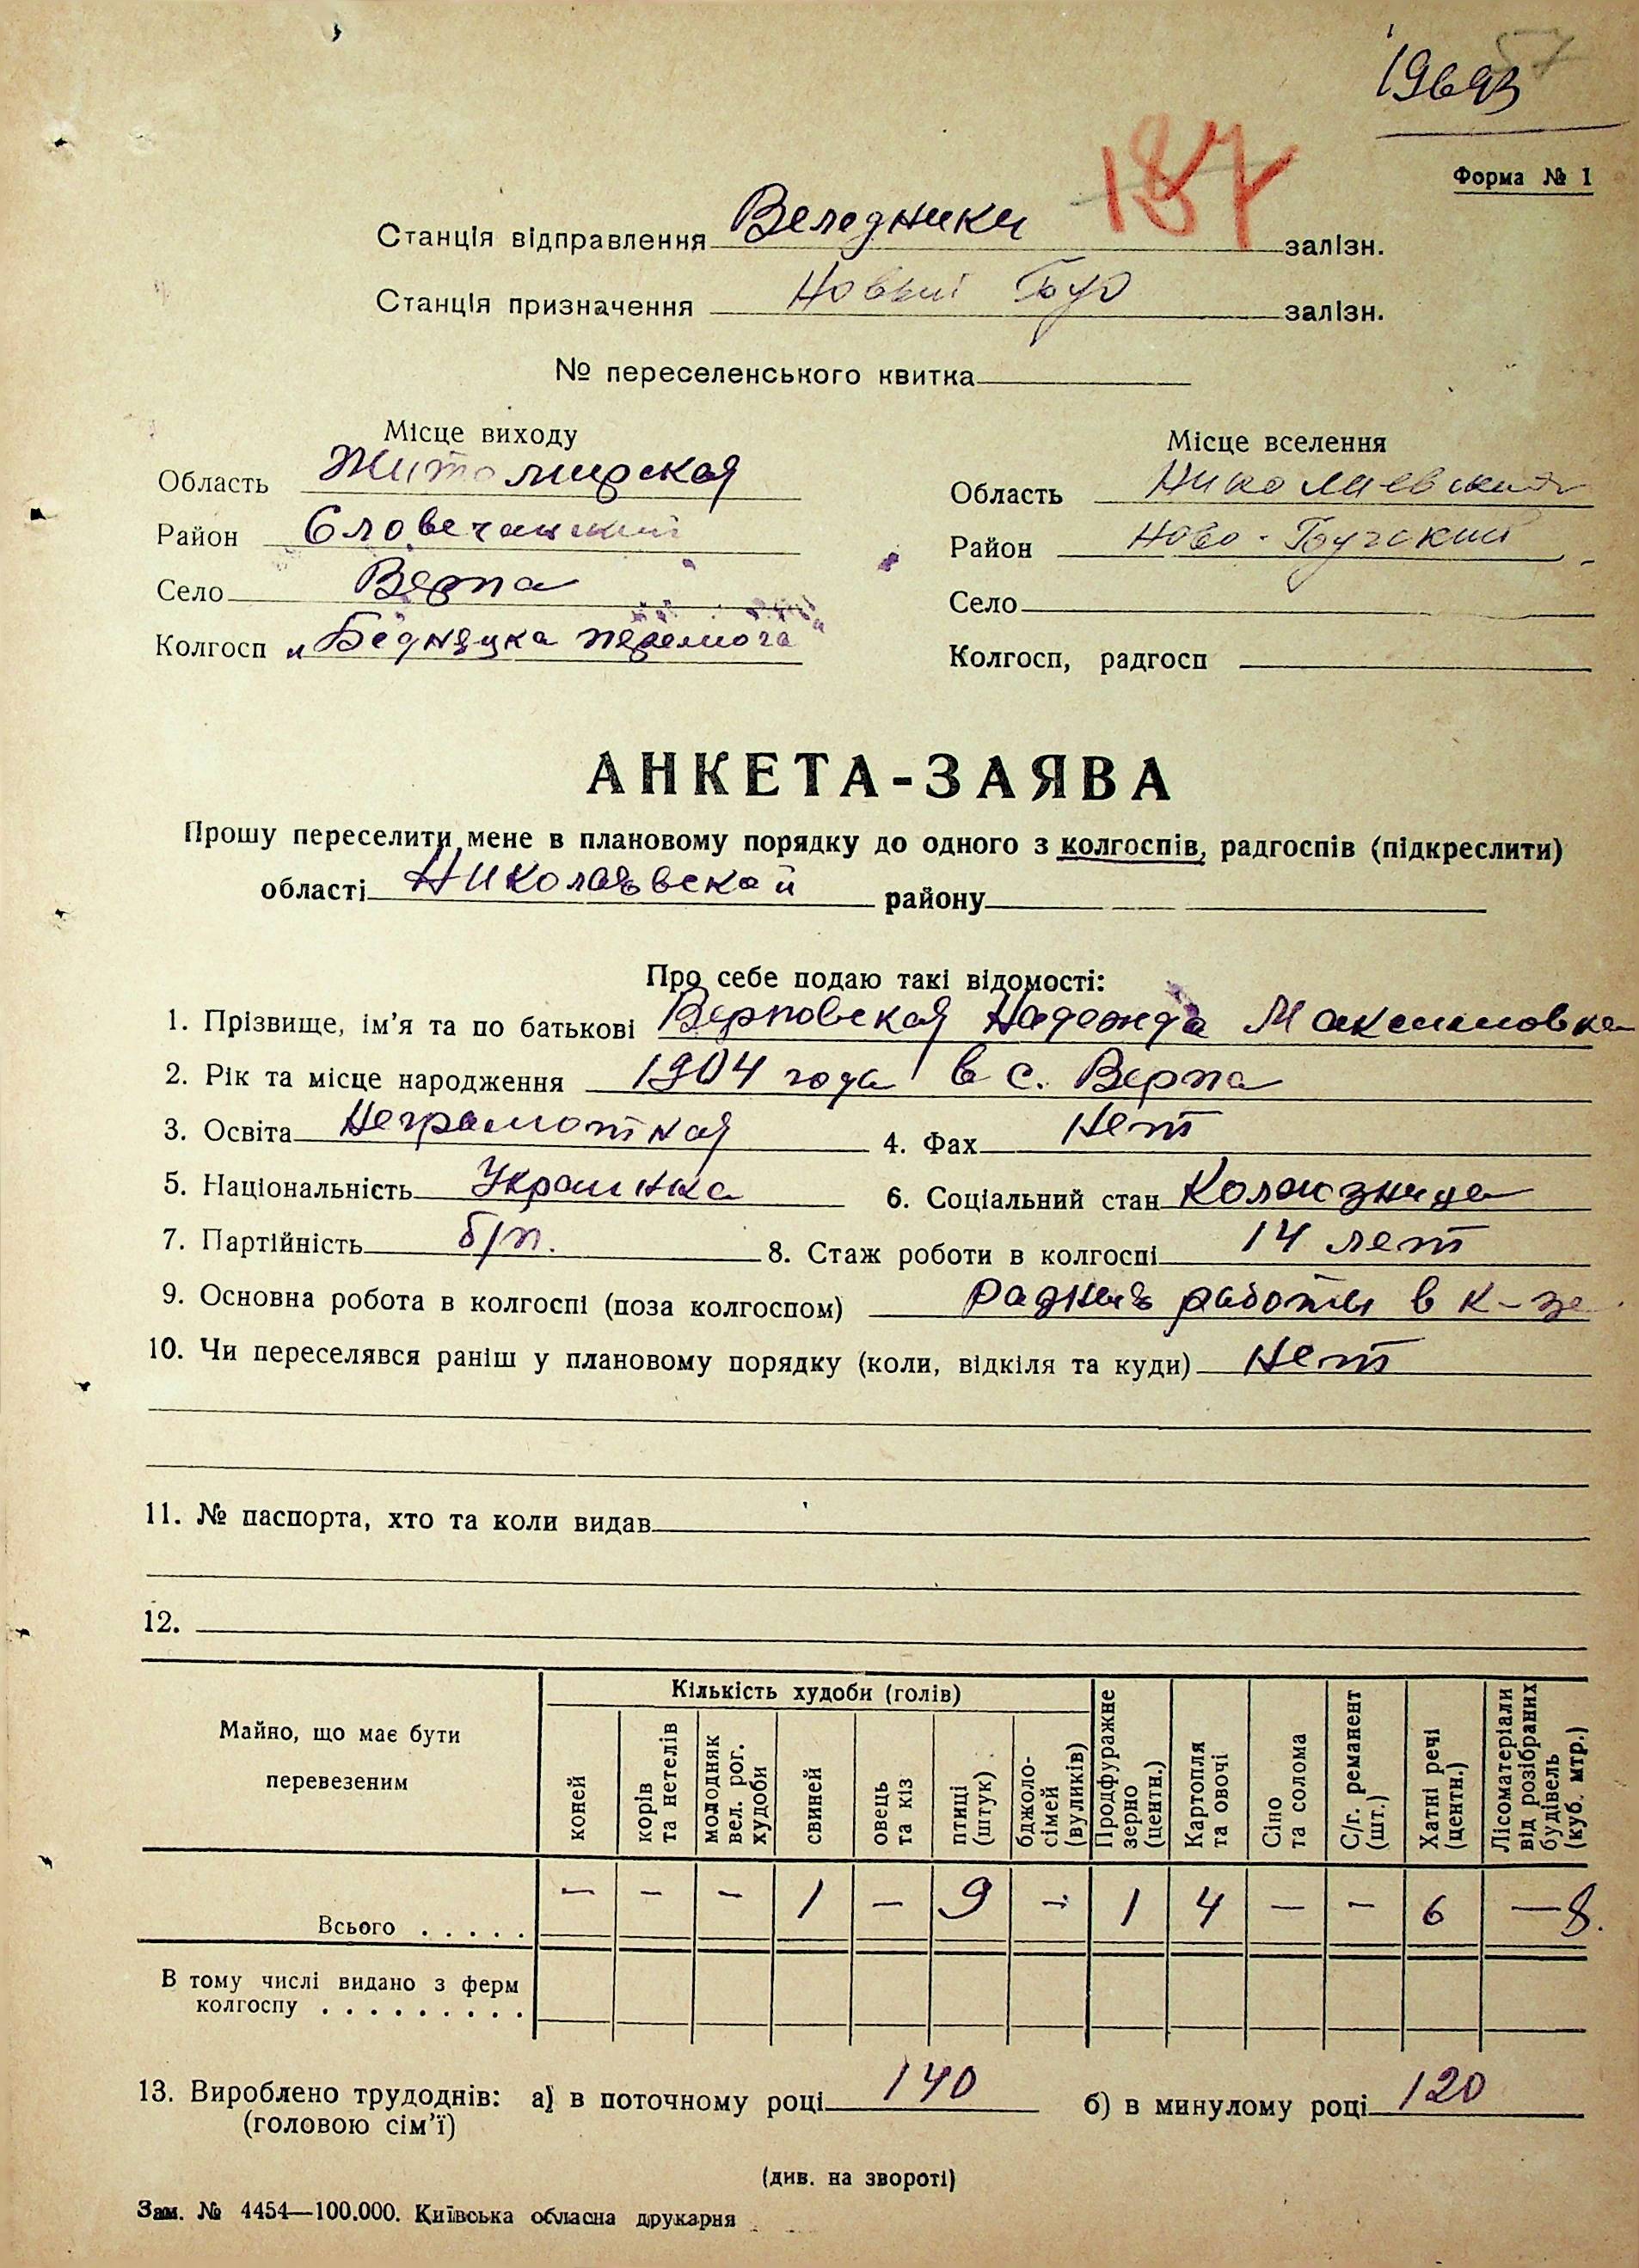 19693
57
187
Форма № 1
Станція відправлення Веледники залізн.
Станція призначення Новый Буг залізн.
№ переселенського квитка
Місце виходу
Область Житомирская
Район Словечанский
Село Верпа
Колгосп „Бідняцка перемога"
Місце вселення
Область Николаевская
Район Ново-Бугский
Село
Колгосп, радгосп
АНКЕТА-ЗАЯВА
Прошу переселити мене в плановому порядку до одного з колгоспів, радгоспів (підкреслити)
області Николаевской району
Про себе подаю такі відомості:
1. Прізвище, ім'я та по батькові Верповская Надежда Максимовна
2. Рік та місце народження 1904 года в с. Верпа
3. Освіта Неграмотная 4. Фах Нет
5. Національність Украинка 6. Соціальний стан Колхозница
7. Партійність б/п. 8. Стаж роботи в колгоспі 14 лет
9. Основна робота в колгоспі (поза колгоспом) работы в к-зе
10. Чи переселявся раніш у плановому порядку (коли, відкіля та куди) Нет
11. № паспорта, хто та коли видав
12.
Майно, що має бути перевезеним
Кількість худоби (голів)
коней
корів та нетелів
молодняк вел. рог. худоби
свиней
овець та кіз
птиці (штук)
бджоло-сімей (вуликів)
Продфуражне зерно (центн.)
Картопля та овочі
Сіно та солома
С/г. реманент (шт.)
Хатні речі (центн.)
Лісоматеріали від розібраних будівель (куб. мтр.)
Всього . . . . . — — — 1 — 9 — 1 4 — — 6 — 8.
В тому числі видано з ферм
колгоспу . . . . . . . . .
13. Вироблено трудоднів: а) в поточному році 140 б) в минулому році 120
(головою сім'ї)
(див. на звороті)
Зам. № 4454—100.000. Київська обласна друкарня